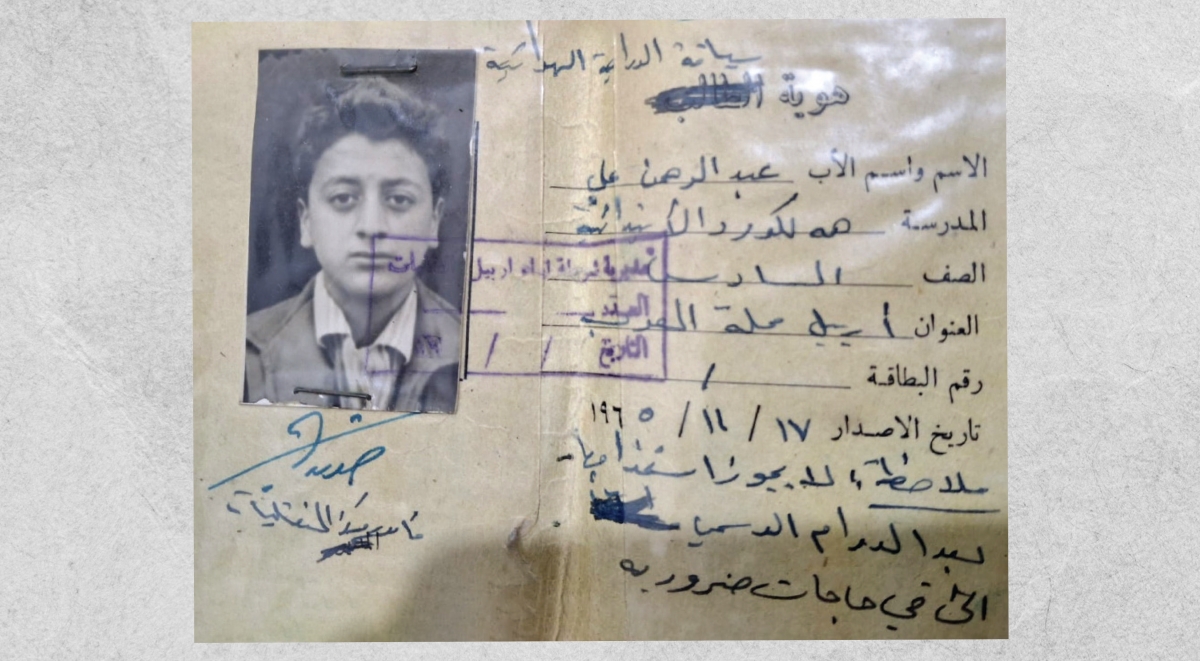 سياقة الدراجة الهوائية
هوية
الاسم واسم الأب عبد الرحمن علي
المدرسة هه لكورد الأبتدائية
الصف السادس
العنوان أربيل محلة
رقم البطاقة /
تاريخ الاصدار ١٧ / ١١ / ١٩٦٥
ملاحظة، لا يجوز استخدامها
بعد الدوام الرسمي
الا في حاجات ضرورية
مديرية شرطة لواء اربيل
العدد
التاريخ / /